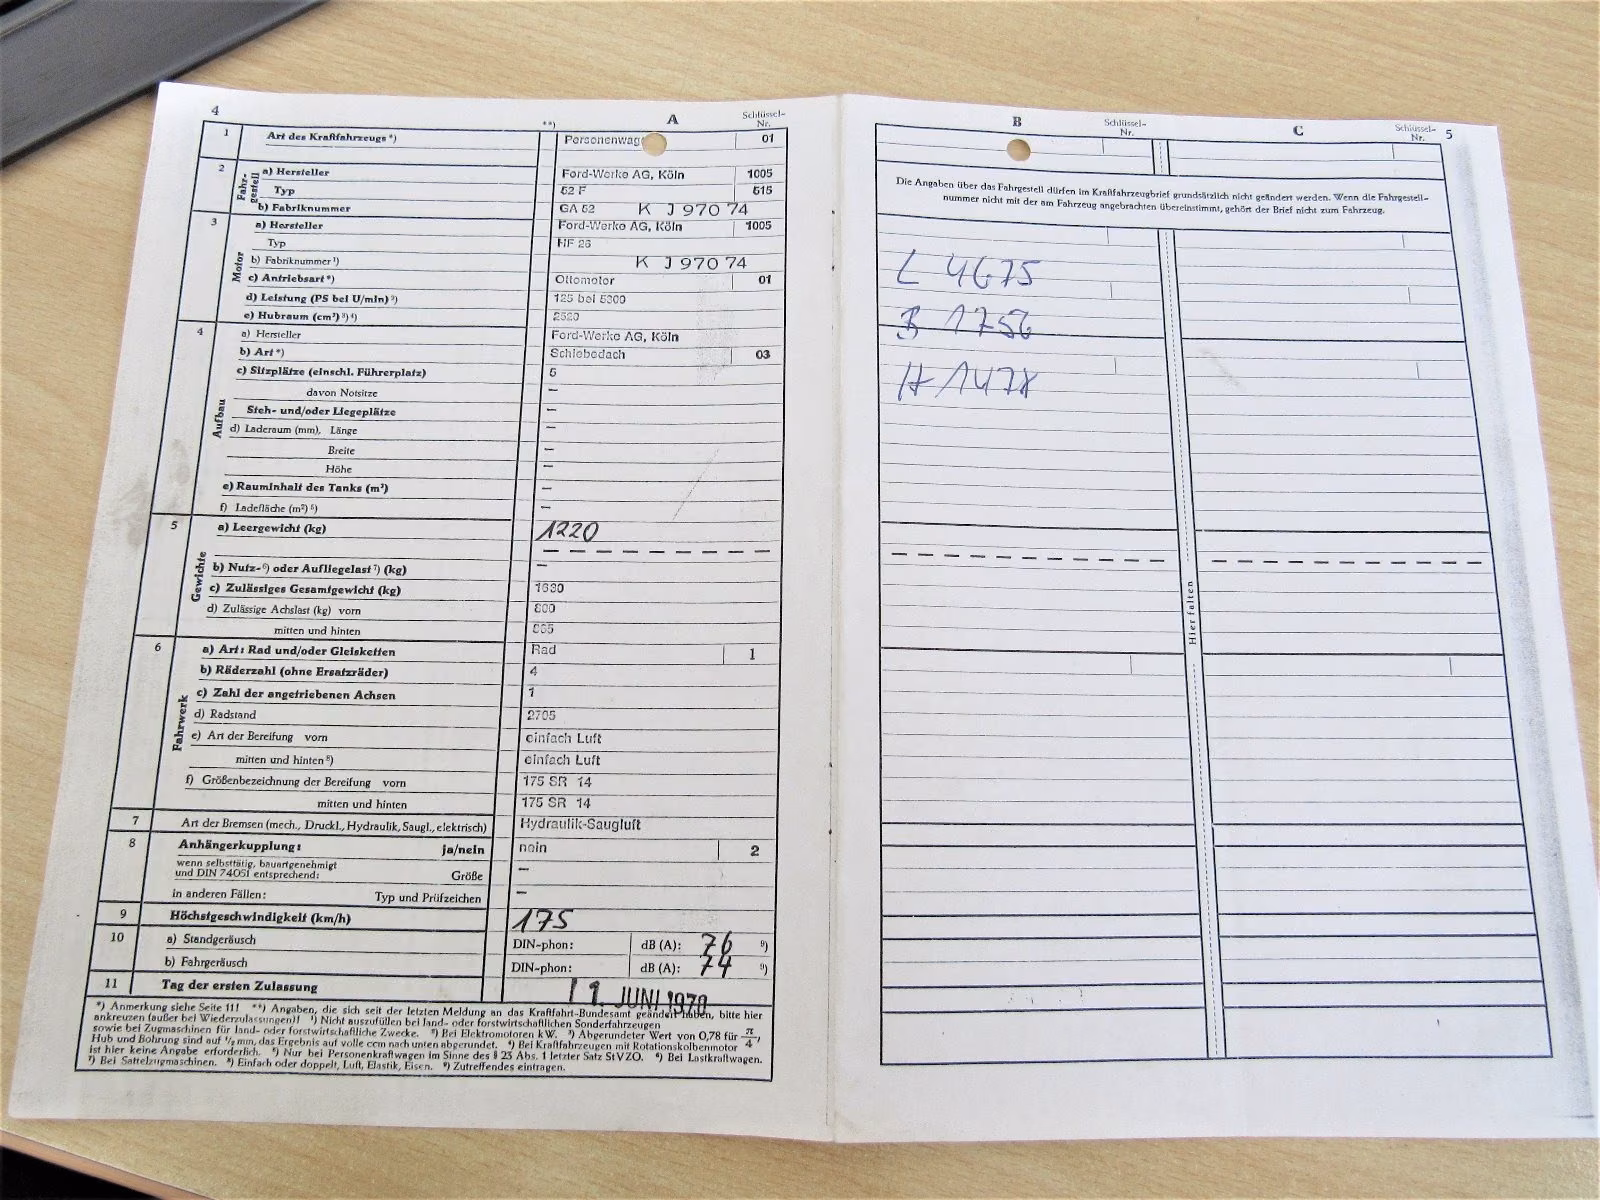 4
**) A Schlüssel-Nr.
1 Art des Kraftfahrzeugs *) Personenwag 01
2 Fahr-gestell a) Hersteller Ford-Werke AG, Köln 1005
Typ 52 F 515
b) Fabriknummer GA 52 K J 970 74
3 Motor a) Hersteller Ford-Werke AG, Köln 1005
Typ HF 26
b) Fabriknummer ¹) K J 970 74
c) Antriebsart *) Ottomotor 01
d) Leistung (PS bei U/min) ²) 125 bei 5300
e) Hubraum (cm³) ³) ⁴) 2520
4 Aufbau a) Hersteller Ford-Werke AG, Köln
b) Art *) Schiebedach 03
c) Sitzplätze (einschl. Führerplatz) 5
davon Notsitze —
Steh- und/oder Liegeplätze —
d) Laderaum (mm), Länge —
Breite —
Höhe —
e) Rauminhalt des Tanks (m³) —
f) Ladefläche (m²) ⁵) —
5 Gewichte a) Leergewicht (kg) 1220
b) Nutz- ⁶) oder Aufliegelast ⁷) (kg) —
c) Zulässiges Gesamtgewicht (kg) 1630
d) Zulässige Achslast (kg) vorn 800
mitten und hinten 865
6 Fahrwerk a) Art: Rad und/oder Gleisketten Rad 1
b) Räderzahl (ohne Ersatzräder) 4
c) Zahl der angetriebenen Achsen 1
d) Radstand 2705
e) Art der Bereifung vorn einfach Luft
mitten und hinten ⁸) einfach Luft
f) Größenbezeichnung der Bereifung vorn 175 SR 14
mitten und hinten 175 SR 14
7 Art der Bremsen (mech., Druckl., Hydraulik, Saugl., elektrisch) Hydraulik-Saugluft
8 Anhängerkupplung: ja/nein nein 2
wenn selbsttätig, bauartgenehmigt
und DIN 74051 entsprechend: Größe —
in anderen Fällen: Typ und Prüfzeichen —
9 Höchstgeschwindigkeit (km/h) 175
10 a) Standgeräusch DIN-phon: dB (A): 76 ⁹)
b) Fahrgeräusch DIN-phon: dB (A): 74 ⁹)
11 Tag der ersten Zulassung 11. JUNI 1970
*) Anmerkung siehe Seite 11! **) Angaben, die sich seit der letzten Meldung an das Kraftfahrt-Bundesamt geändert haben, bitte hier
ankreuzen (außer bei Wiederzulassungen)! ¹) Nicht auszufüllen bei land- oder forstwirtschaftlichen Sonderfahrzeugen
sowie bei Zugmaschinen für land- oder forstwirtschaftliche Zwecke. ²) Bei Elektromotoren kW. ³) Abgerundeter Wert von 0,78 für π/4,
Hub und Bohrung sind auf ½ mm, das Ergebnis auf volle ccm nach unten abgerundet. ⁴) Bei Kraftfahrzeugen mit Rotationskolbenmotor
ist hier keine Angabe erforderlich. ⁵) Nur bei Personenkraftwagen im Sinne des § 23 Abs. 1 letzter Satz StVZO. ⁶) Bei Lastkraftwagen.
⁷) Bei Sattelzugmaschinen. ⁸) Einfach oder doppelt, Luft, Elastik, Eisen. ⁹) Zutreffendes eintragen.
B Schlüssel-Nr. C Schlüssel-Nr. 5
Die Angaben über das Fahrgestell dürfen im Kraftfahrzeugbrief grundsätzlich nicht geändert werden. Wenn die Fahrgestell-
nummer nicht mit der am Fahrzeug angebrachten übereinstimmt, gehört der Brief nicht zum Fahrzeug.
L 4675
B 1756
H 1478
Hier falten